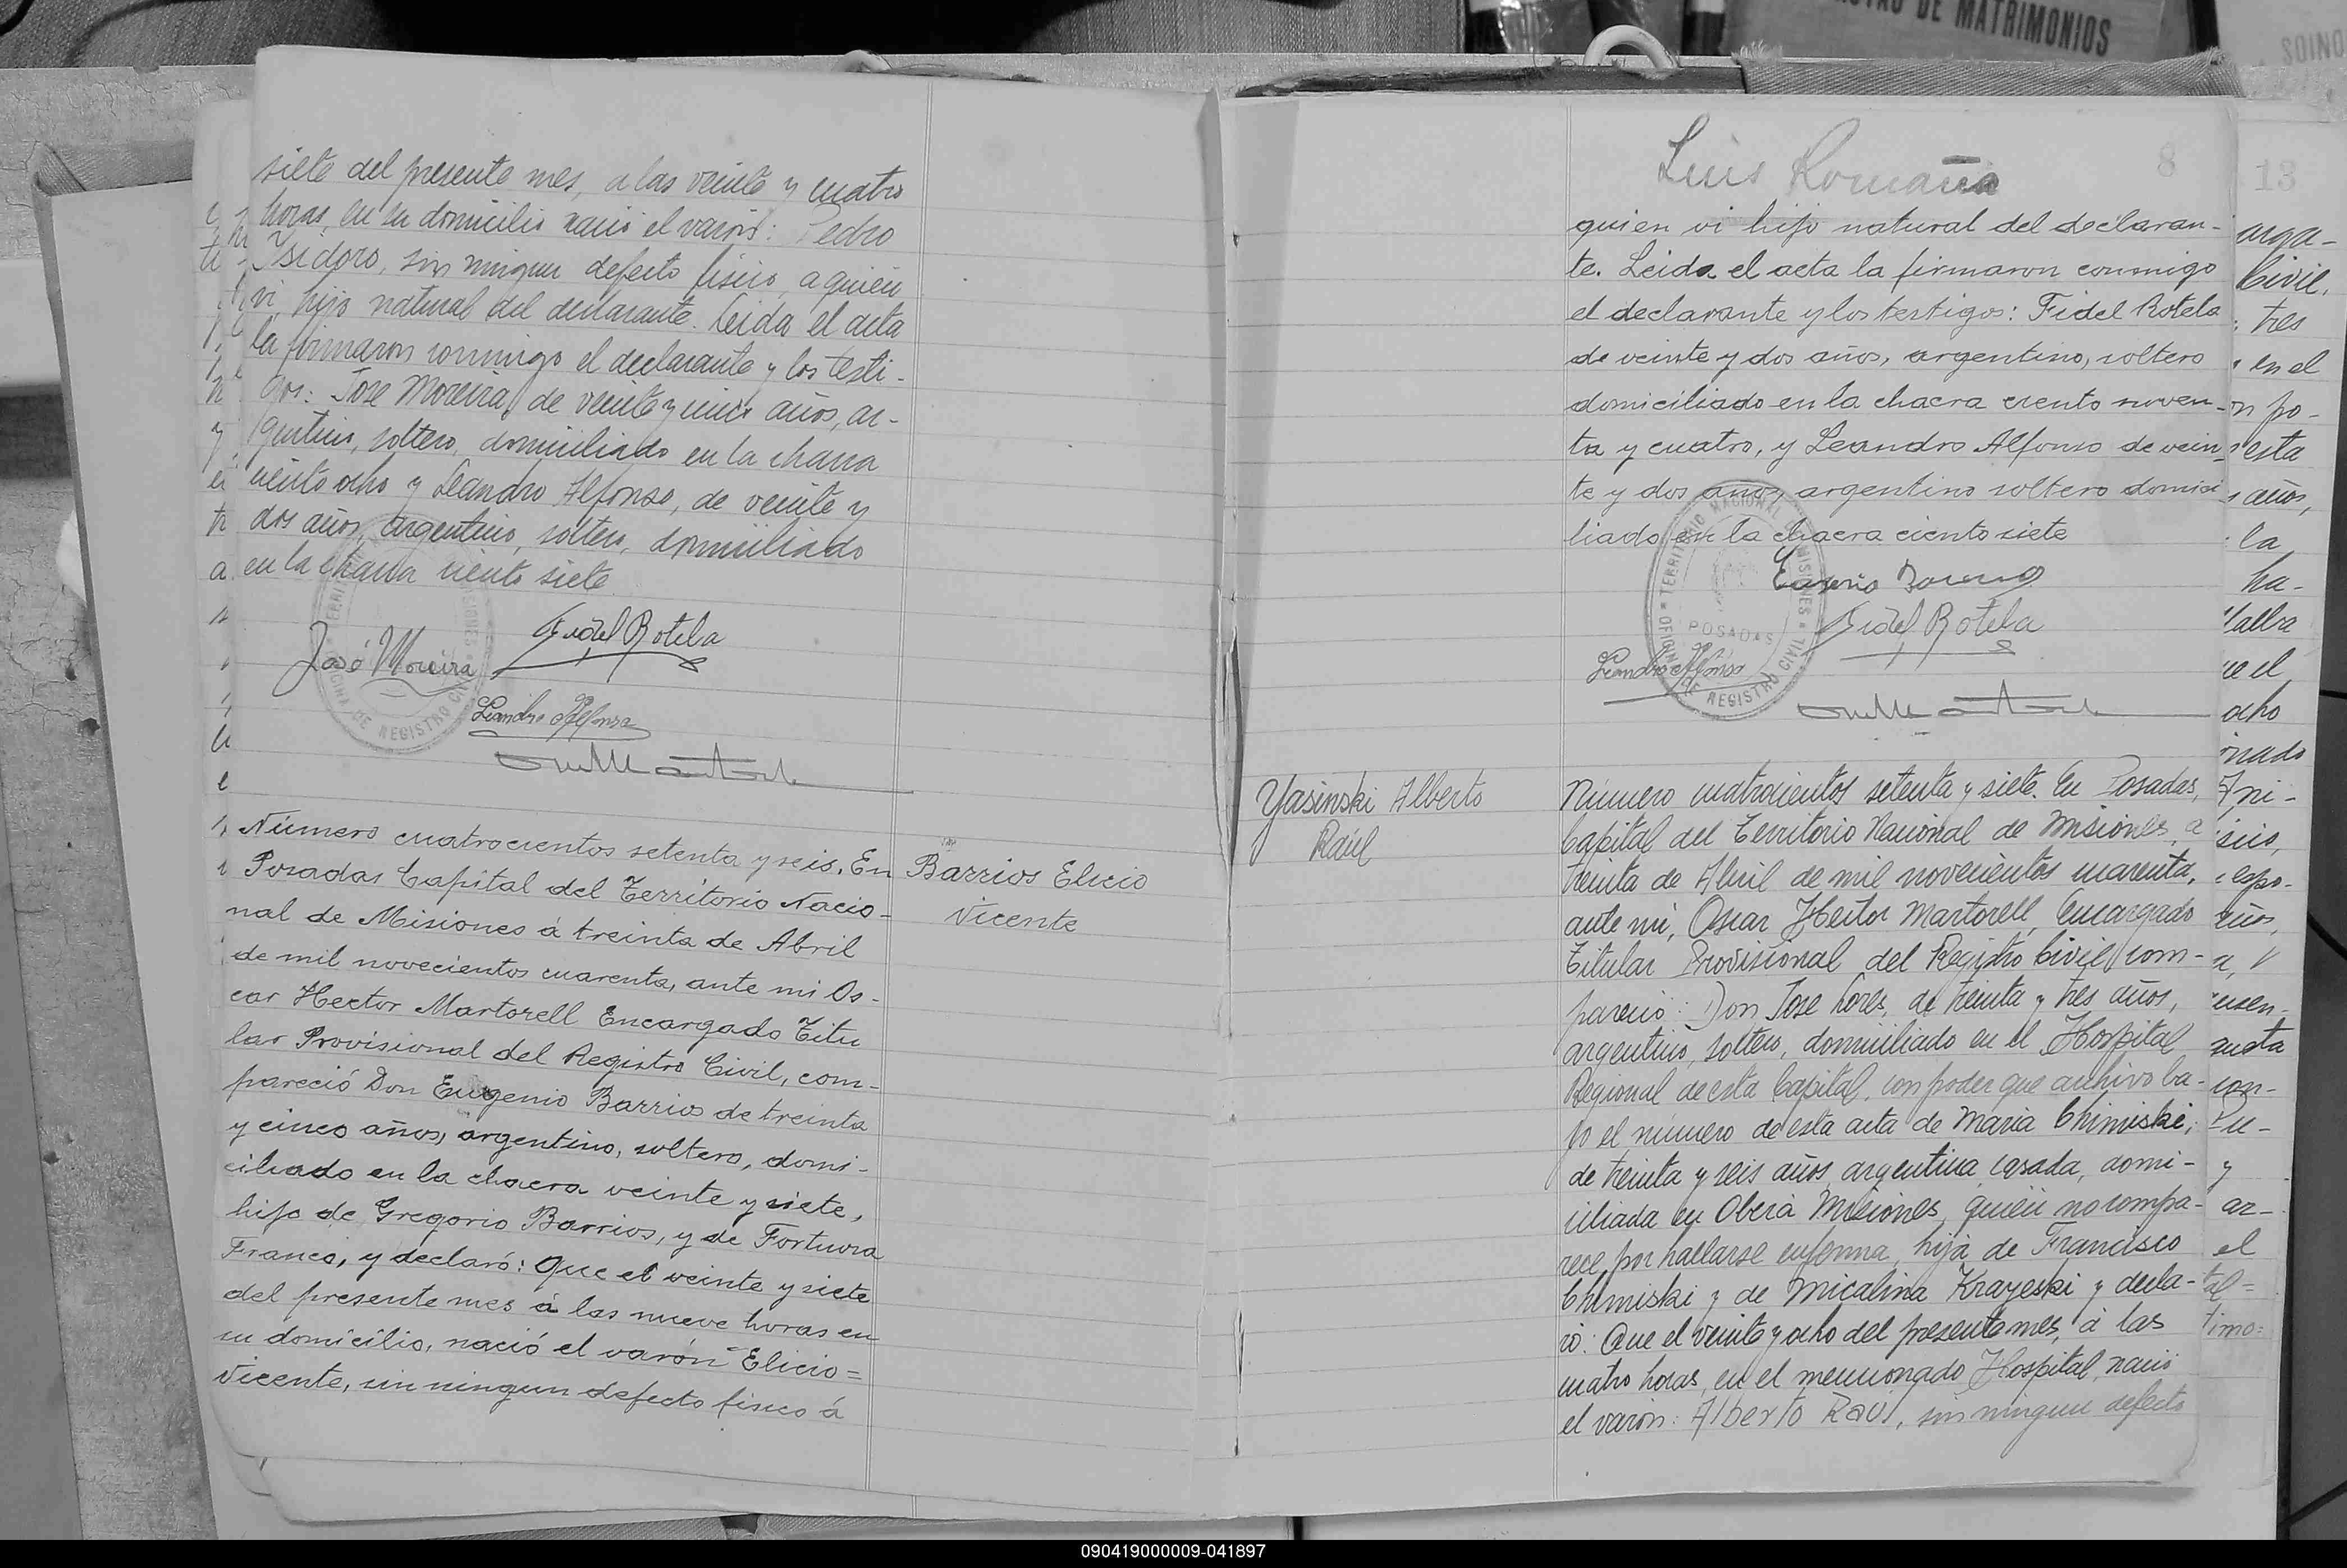 siete del presente mes, a las veinte y cuatro
horas, en su domicilio nació el varón: Pedro
Isidoro, sin ningun defecto fisico, a quien
vi, hijo natural del declarante. Leida el acta
la firmaron conmigo el declarante y los testi-
gos: Jose Moreira, de veinte y cinco años, ar-
gentino, soltero, domiciliado en la chacra
ciento ocho y Leandro Alfonso, de veinte y
dos años, argentino, soltero, domiciliado
en la chacra ciento siete
Fidel Rotela
José Moreira
Leandro Alfonso
Número cuatrocientos setenta y seis. En
Posadas Capital del Territorio Nacio-
nal de Misiones á treinta de Abril
de mil novecientos cuarenta, ante mi Os-
car Hector Martorell Encargado Titu
lar Provisional del Registro Civil, com-
pareció Don Eugenio Barrios de treinta
y cinco años, argentino, soltero, domi-
ciliado en la chacra veinte y siete,
hijo de Gregorio Barrios, y de Fortuna
Franco, y declaró: Que el veinte y siete
del presente mes á las nueve horas en
su domicilio, nació el varón Elicio=
Vicente, sin ningun defecto fisico á
Barrios Elicio
Vicente
REGISTRO DE MATRIMONIOS
Luis Romaña
8
quien vi hijo natural del declaran-
te. Leida el acta la firmaron conmigo
el declarante y los testigos: Fidel Rotela
de veinte y dos años, argentino, soltero
domiciliado en la chacra ciento noven-
ta y cuatro, y Leandro Alfonso de vein-
te y dos años argentino soltero domici
liado en la chacra ciento siete
TERRITORIO NACIONAL DE MISIONES
POSADAS
OFICINA DE REGISTRO CIVIL
Eugenio Barrios
Fidel Rotela
Leandro Alfonso
Yasinski Alberto
Raúl
Número cuatrocientos setenta y siete. En Posadas,
Capital del Territorio Nacional de Misiones, a
treinta de Abril de mil novecientos cuarenta,
ante mi, Oscar Hector Martorell, Encargado
Titular Provisional del Registro Civil, com-
pareció: Don Jose Lores, de treinta y tres años,
argentino, soltero, domiciliado en el Hospital
Regional de esta Capital, con poder que archivo ba-
jo el número de esta acta de Maria Chimiski,
de treinta y seis años, argentina, casada, domi-
ciliada en Oberá Misiones, quien no compa-
rece por hallarse enferma, hija de Francisco
Chimiski y de Micalina Krayeski y decla-
ró: Que el veinte y ocho del presente mes, á las
cuatro horas, en el mencionado Hospital, nació
el varón: Alberto Raul, sin ningun defecto
13
Civil.
tres
en el
esta
años,
la
ha-
ocho
el
090419000009-041897